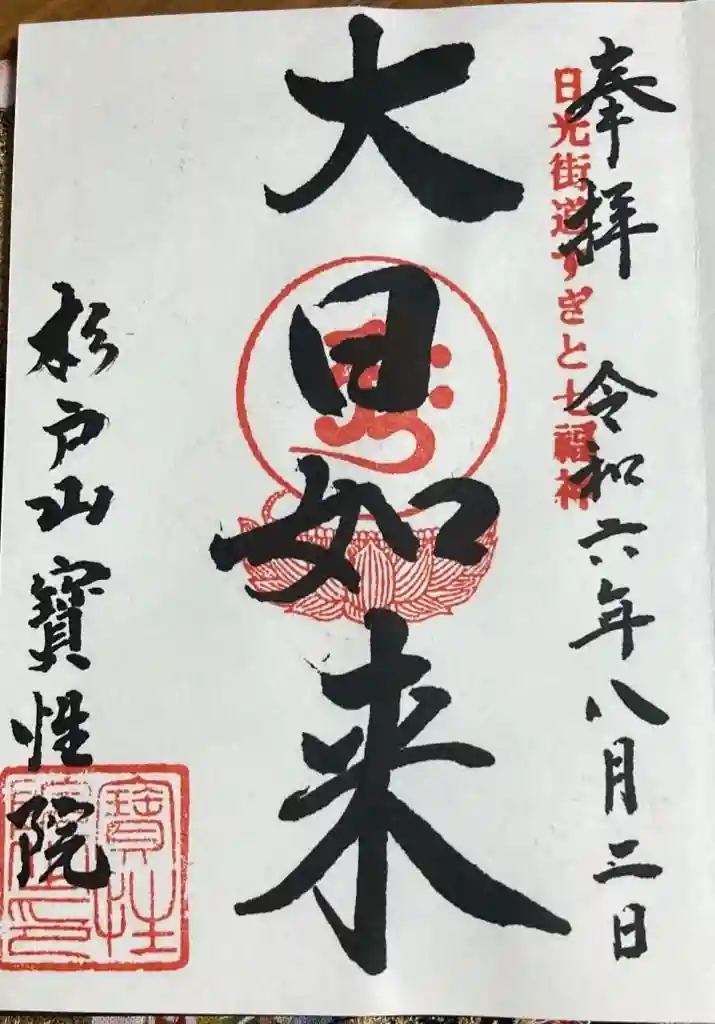 奉拝
令和六年八月二日
日光街道すぎと七福神
大日如来
杉戸山寶性院
寶性
院印